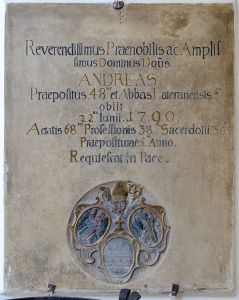 Reverendissimus Praenobilis ac Amplis
simus Dominus Doñs
ANDREAS
Praepositus 48us et Abbas Lateranensis 6
obiit
22da Iunii. 1790,
Aetatis 68 Professionis 38, Sacerdotii 34
Praepositurae Anno.
Requiescat in Pace.